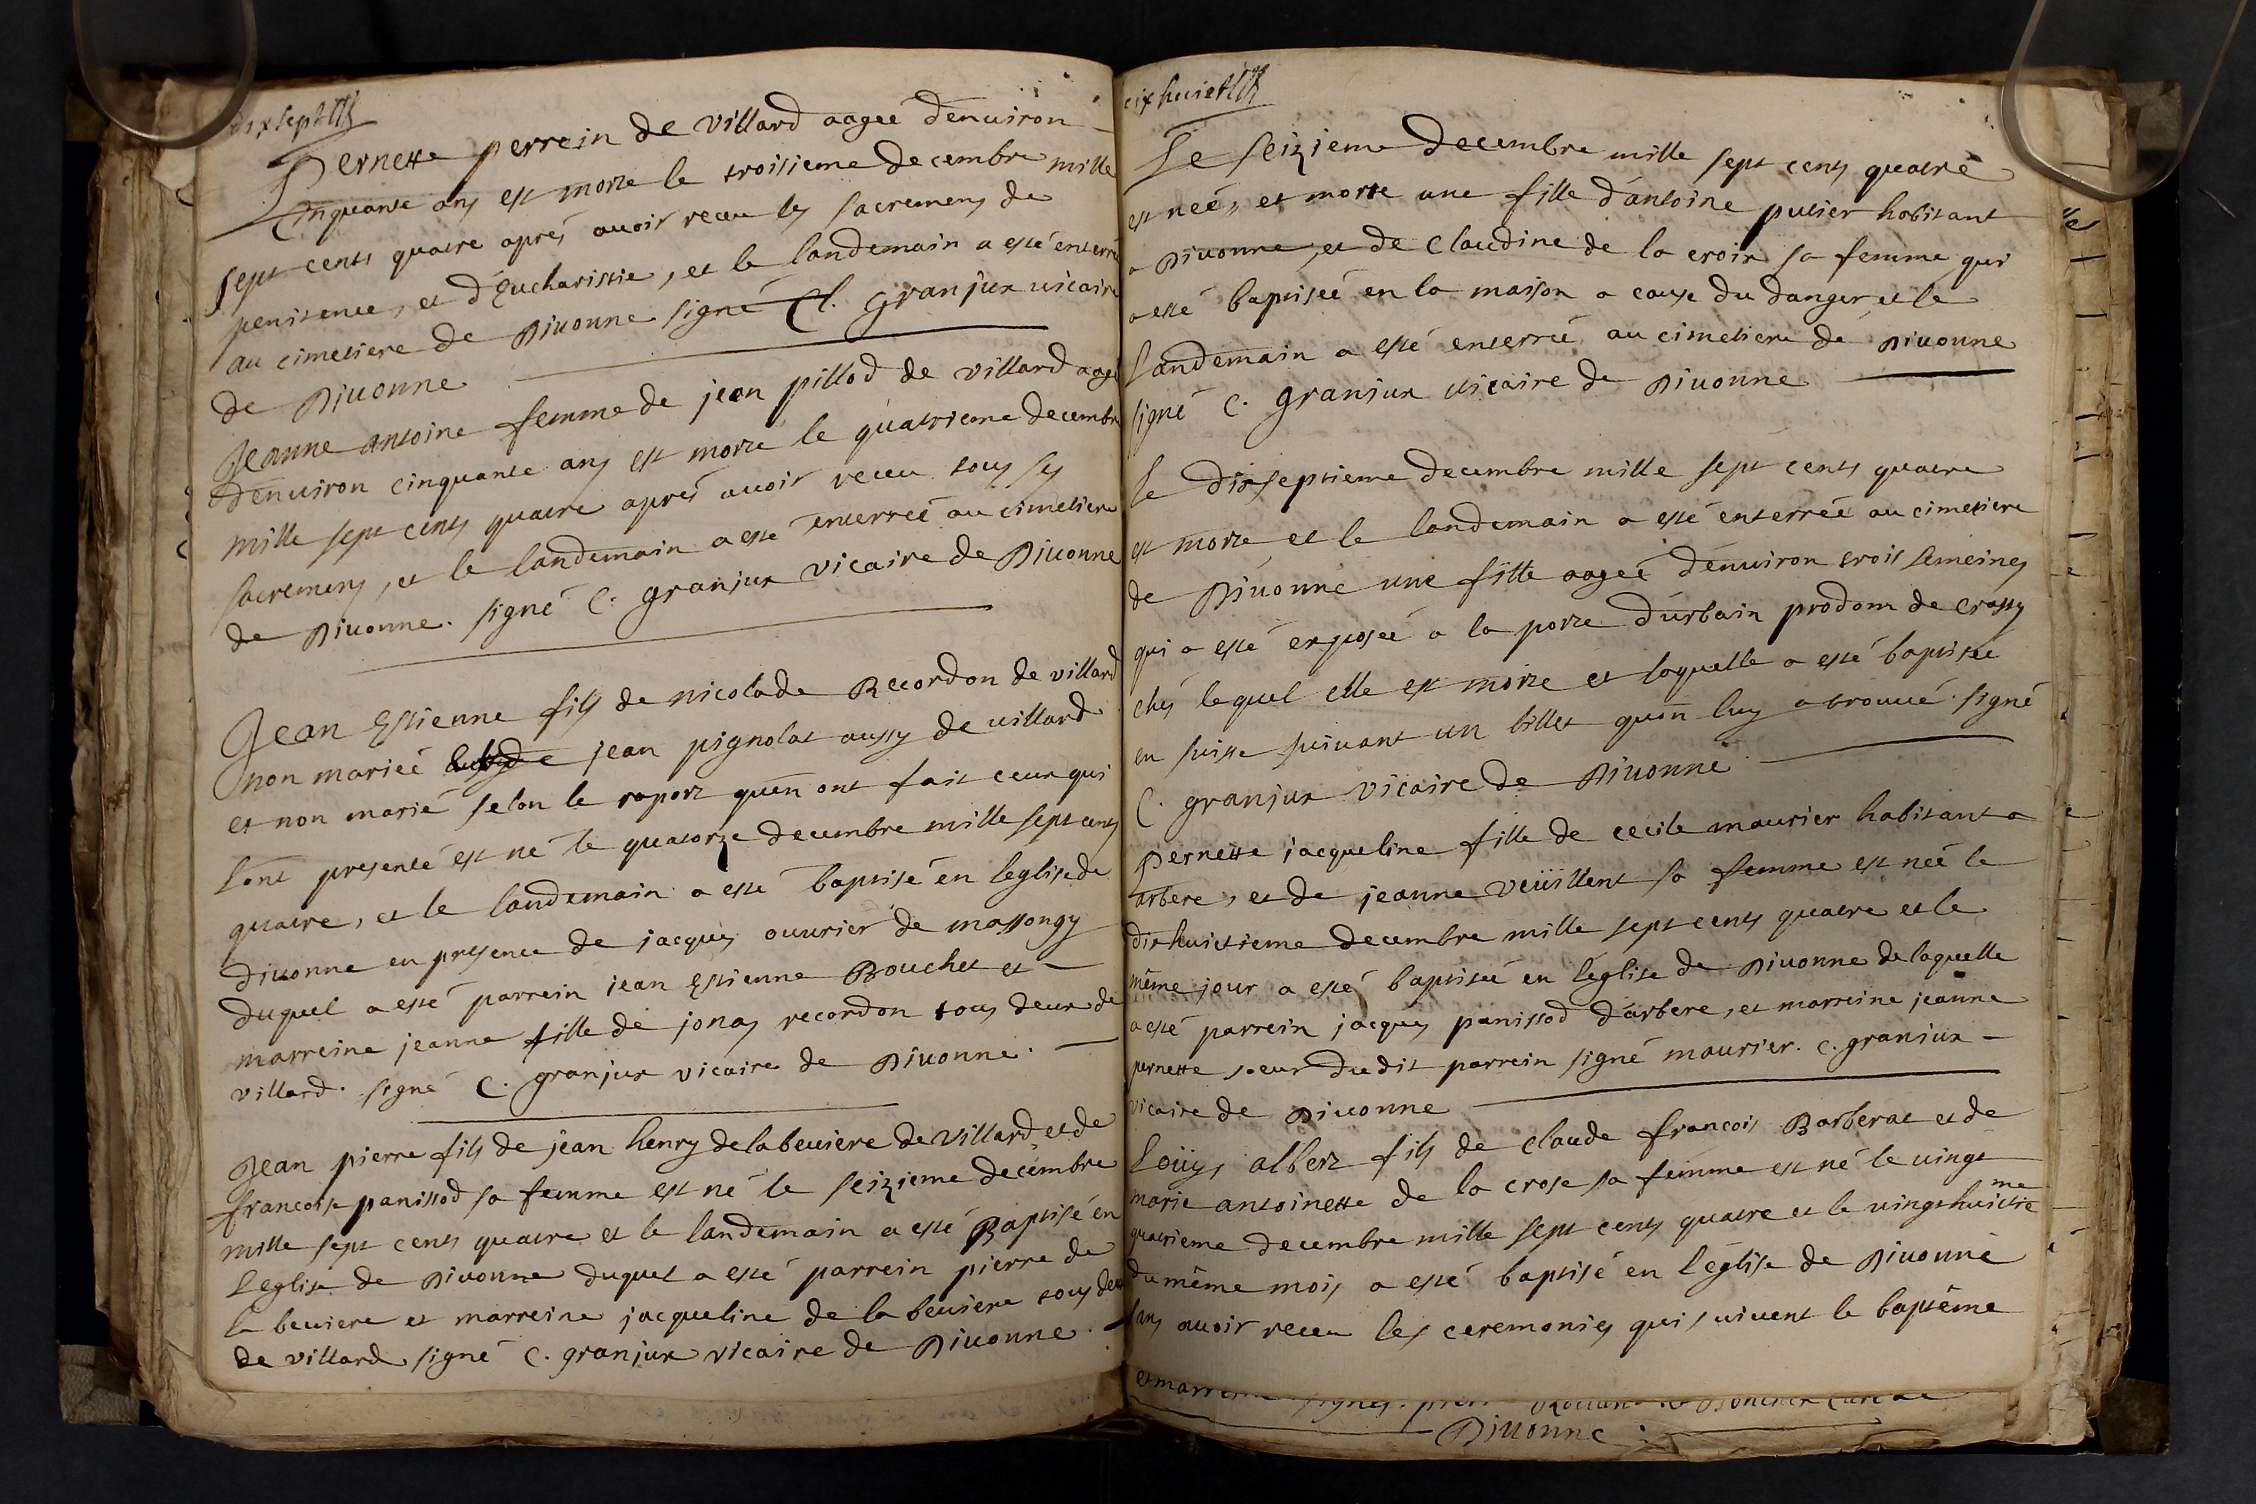 dixsept
Pernette perrein de villard aagée d'enuiron
Cinquante ans est morte le troisieme decembre mille
sept cents quatre aprés auoir receu les sacremens de
penitence, et d'Eucharistie, et le landemain a esté enterré
au cimetiere de Diuonne signé Cl. granjux uicaire
de Diuonne
Jeanne antoine femme de jean pillod de villard aagé
d'enuiron cinquante ans est morte le quatrieme decembre
mille sept cents quatre aprés auoir receu tous ses
sacremens, et le landemain a esté enterreé au cimetiere
de Diuonne. signé C. granjux vicaire de Diuonne
Jean Estienne fils de nicolade Recordon de villard
non marieé jean pignolat aussy de uillard
et non marié selon le raport qu'en ont fait ceux qui
l'ont presenté est né le quatorze decembre mille sept cents
quatre, et le landemain a esté baptisé en l'eglise de
diuonne en presence de jacques ouurier de massongy
duquel a esté parrein jean Estienne Bouchet et
marreine jeanne fille de jonas recordon tous deux de
villard. signé C. granjux vicaire de Diuonne.
Jean pierre fils de jean henry de la beuiere de villard, et de
francoise panissod sa femme est né le seizieme decembre
mille sept cents quatre et le landemain a esté Baptisé en
L'eglise de Diuonne duquel a esté parrein pierre de
la beuiere et marreine jacqueline de la beuiere tous deux
de villard signé C. granjux vicaire de Diuonne.
dixhuict
Le seizieme decembre mille sept cents quatre
est neé, et morte une fille d'antoine putier habitant
a Diuonne, et de Claudine de la croix sa femme qui
a esté baptiseé en la maison a cause du danger, et le
landemain a esté enterreé au cimetiere de Diuonne
signé C. granjux uicaire de Diuonne
Le dixseptieme decembre mille sept cents quatre
est morte, et le landemain a esté enterreé au cimetiere
de Diuonne une fille aageé d'enuiron trois semeines
qui a esté exposeé a la porte d'urbain prodom de Crassy
chés lequel elle est morte et laquelle a esté baptisée
en suisse suiuant un billet qu'on luy a trouué. signé
C. granjux vicaire de Diuonne
Pernette jacqueline fille de cecile maurier habitant a
arbere, et de jeanne veüillent sa femme est neé le
dixhuictieme decembre mille sept cents quatre et le
même jour a esté baptiseé en l'église de Diuonne de laquelle
a esté parrein jacques panissod d'arbere, et marreine jeanne
pernette soeur dudit parrein signé maurier. C. granjux
vicaire de Diuonne
Loüys albert fils de claude francois Barberat et de
marie antoinette de la crose sa femme est né le uingt
quatrieme decembre mille sept cents quatre et le uingthuictieme
du même mois a esté baptisé en l'église de Diuonne
sans auoir receu les ceremonies qui suiuent le baptême
Diuonne